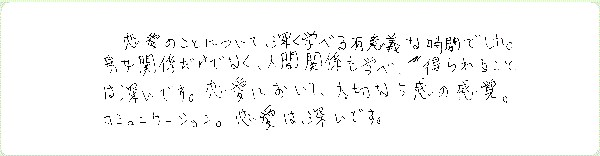 恋愛のことについて、深く学べる有意義な時間でした。
男女関係だけでなく、人間関係も学べ、得られること
は深いです。恋愛において、大切な五感の感覚。
コミュニケーション。恋愛は、深いです。